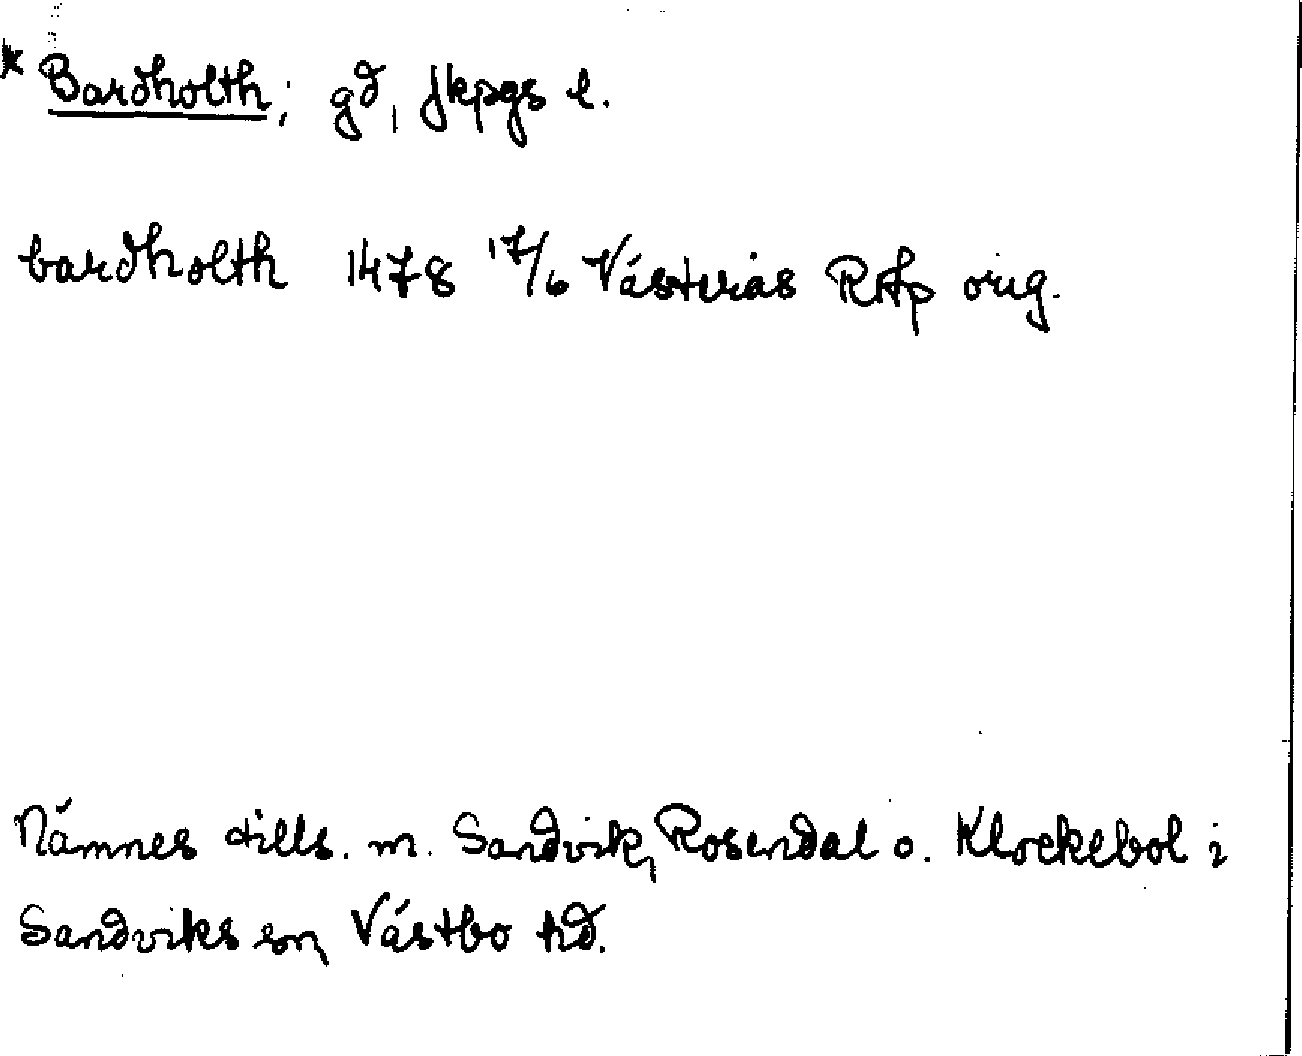 * Bardholth; gd, Jkpgs l.
bardholth 1478 17/6 Västerås RAp orig.
Nämnes tills. m. Sandvik, Rosendal o. Klockebol i
Sandviks sn, Västbo hd.